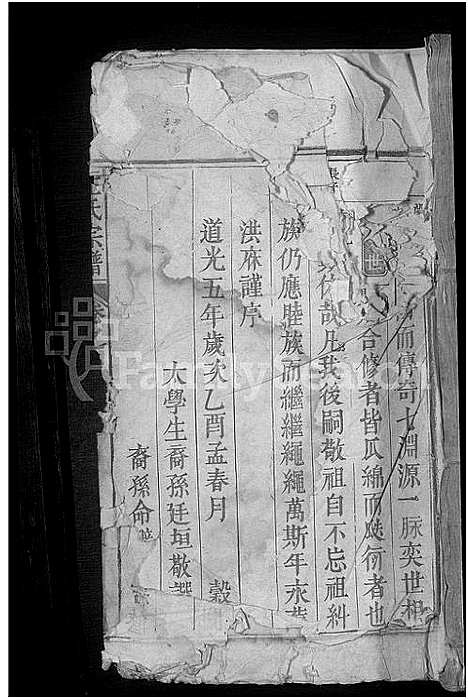 而傳奇七淵源一脉奕世相
世 合修者皆瓜綿而瓞衍者也
哉凡我後嗣敬祖自不忘祖糾
族仍應睦族而繼繼繩繩萬斯年永
洪庥謹序
道光五年歲次乙酉孟春月 穀
太學生裔孫廷垣敬譔
裔孫命
氏宗譜 卷